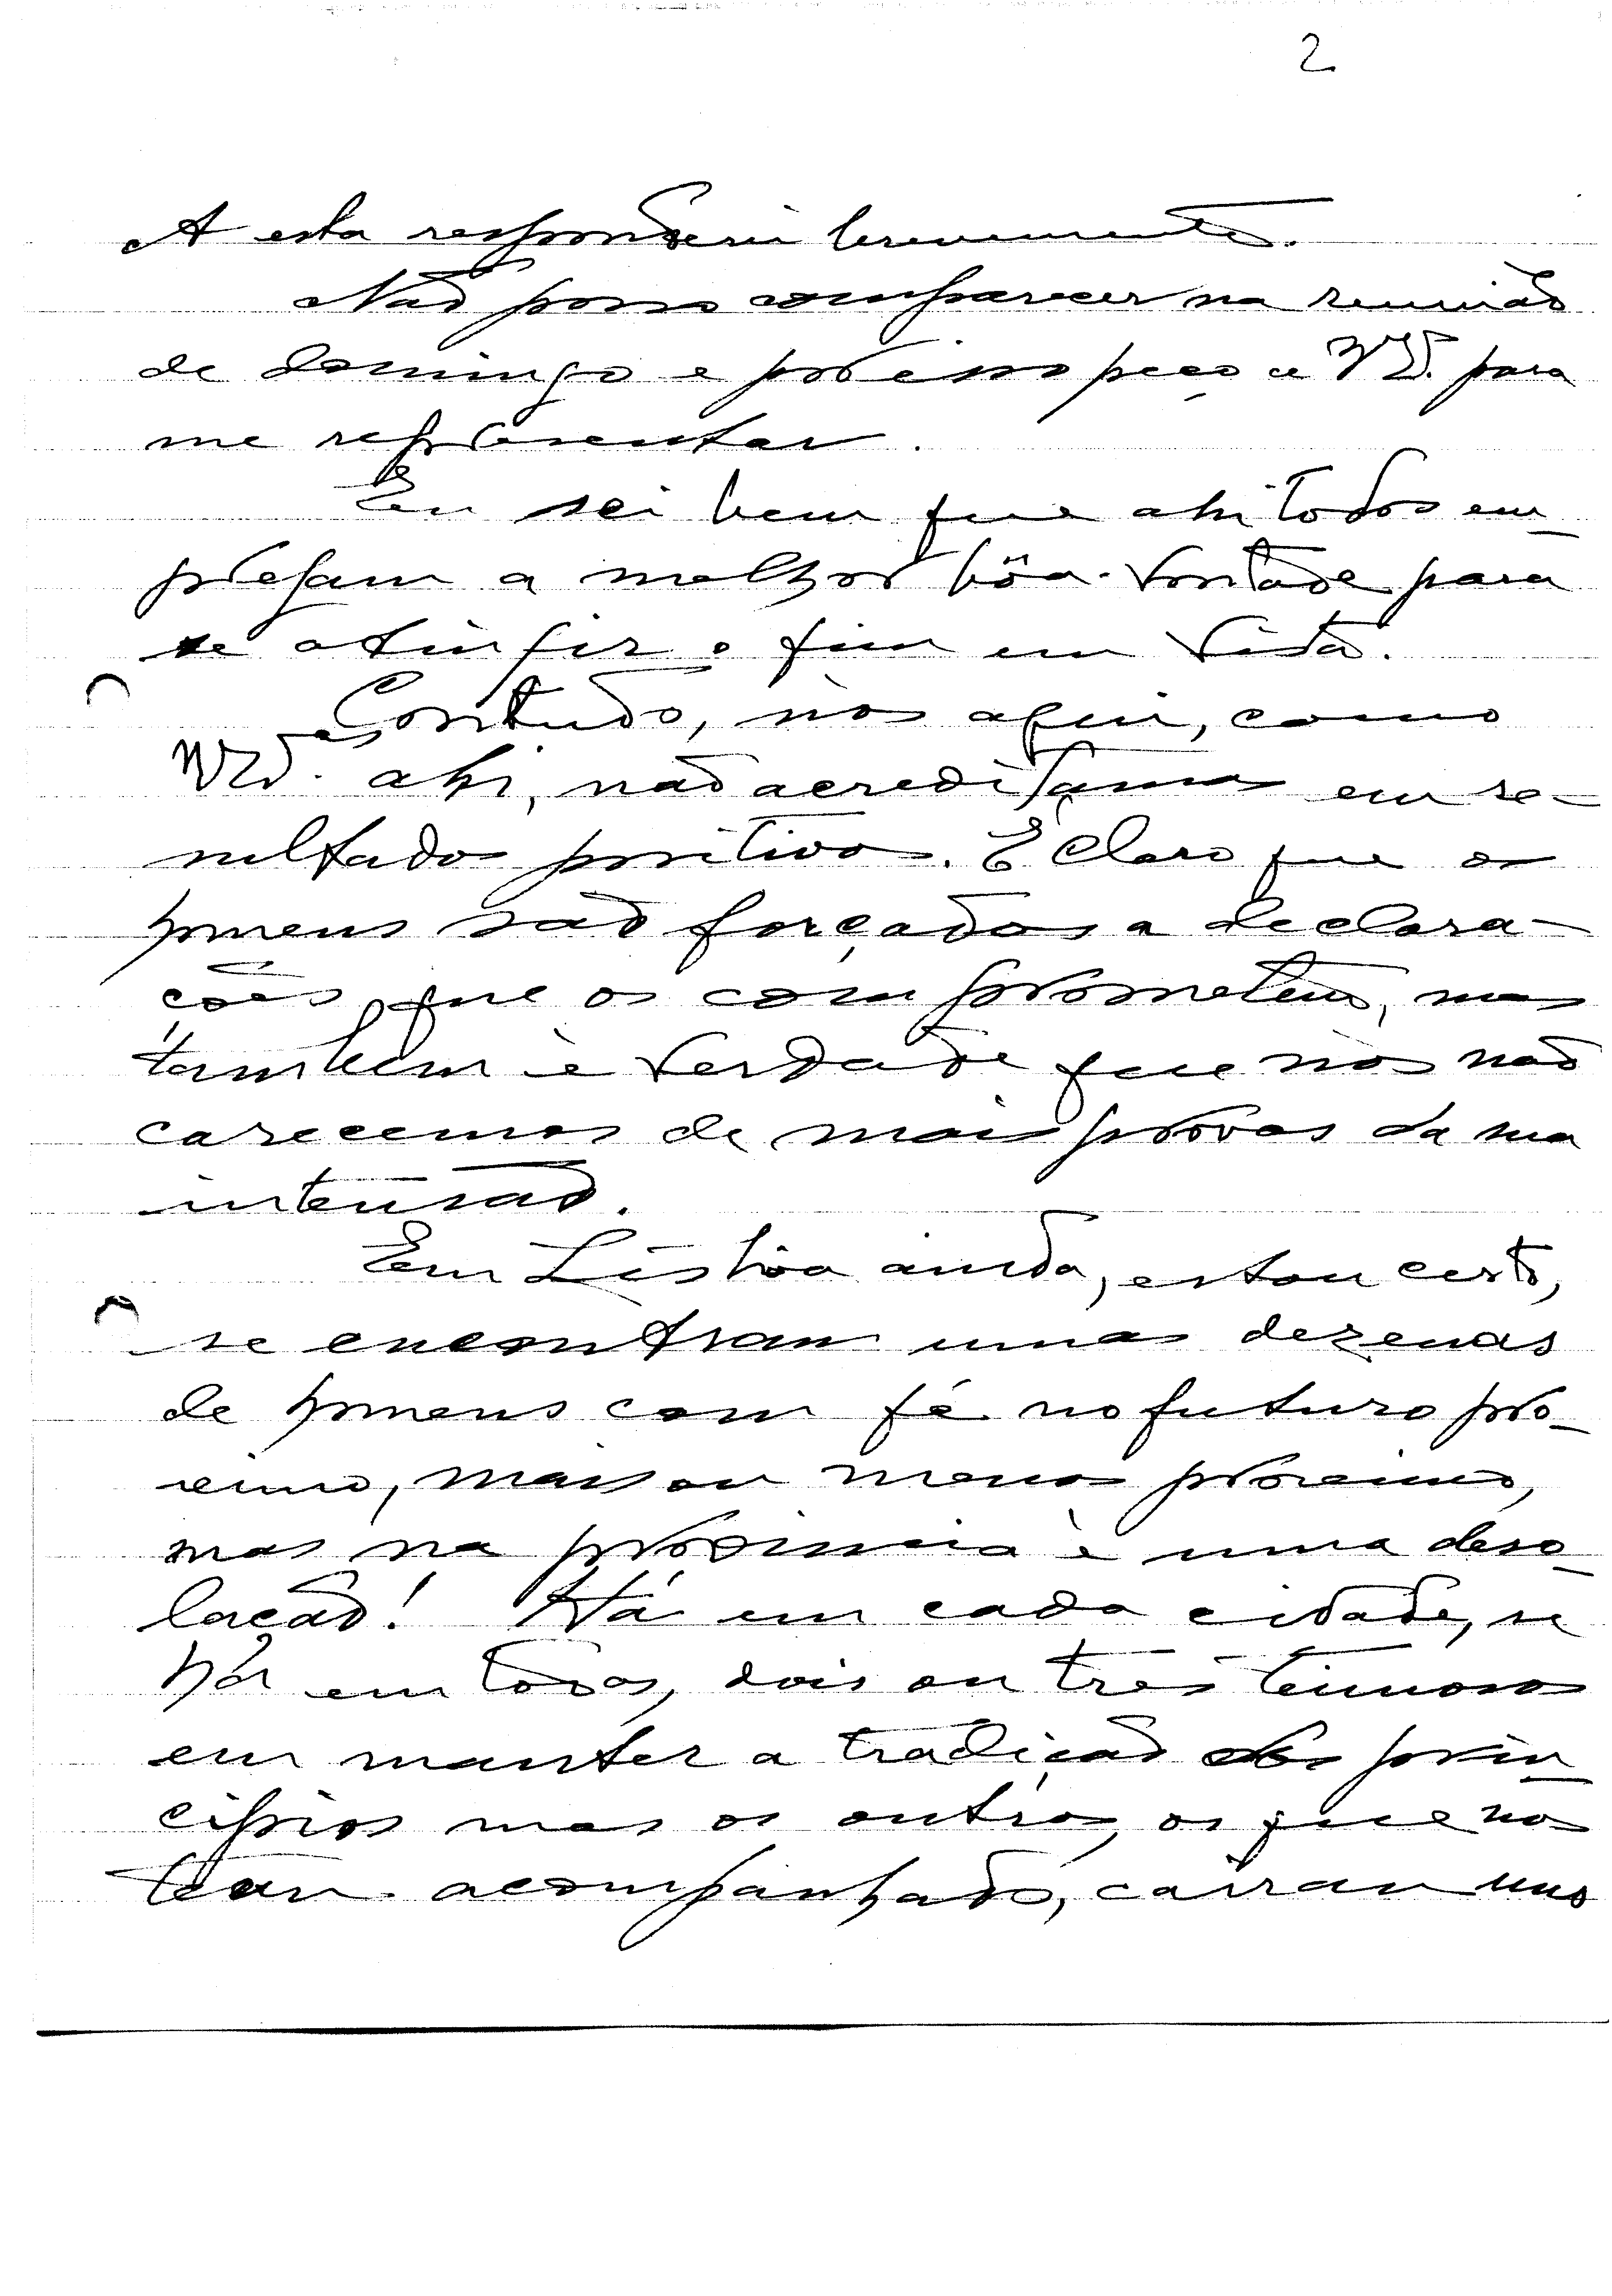 2
A esta responderei brevemente.
Não posso comparecer na reunião
de domingo e por isso peço a V. para
me representar.
Eu sei bem que ahi todos em-
pregam a melhor bôa-vontade para
se atingir o fim em vista.
Contudo, nòs aqui, como
ahi, não acreditamos em re-
sultados positivos. É claro que os
homens são forçados a declara-
ções que os comprometem, mas
tambem è verdade que nòs não
carecemos de mais provas da sua
intensão.
Em Lisbôa ainda, estou certo,
se encontram umas dezenas
de homens com fé no futuro pro-
ximo, mais ou menos proximo,
mas na provincia è uma deso-
lacão! Há em cada cidade, se
há em todas, dois ou três teimosos
em manter a tradição dos prin-
cipios mas os outros, os que nos
teem acompanhado, cairam uns